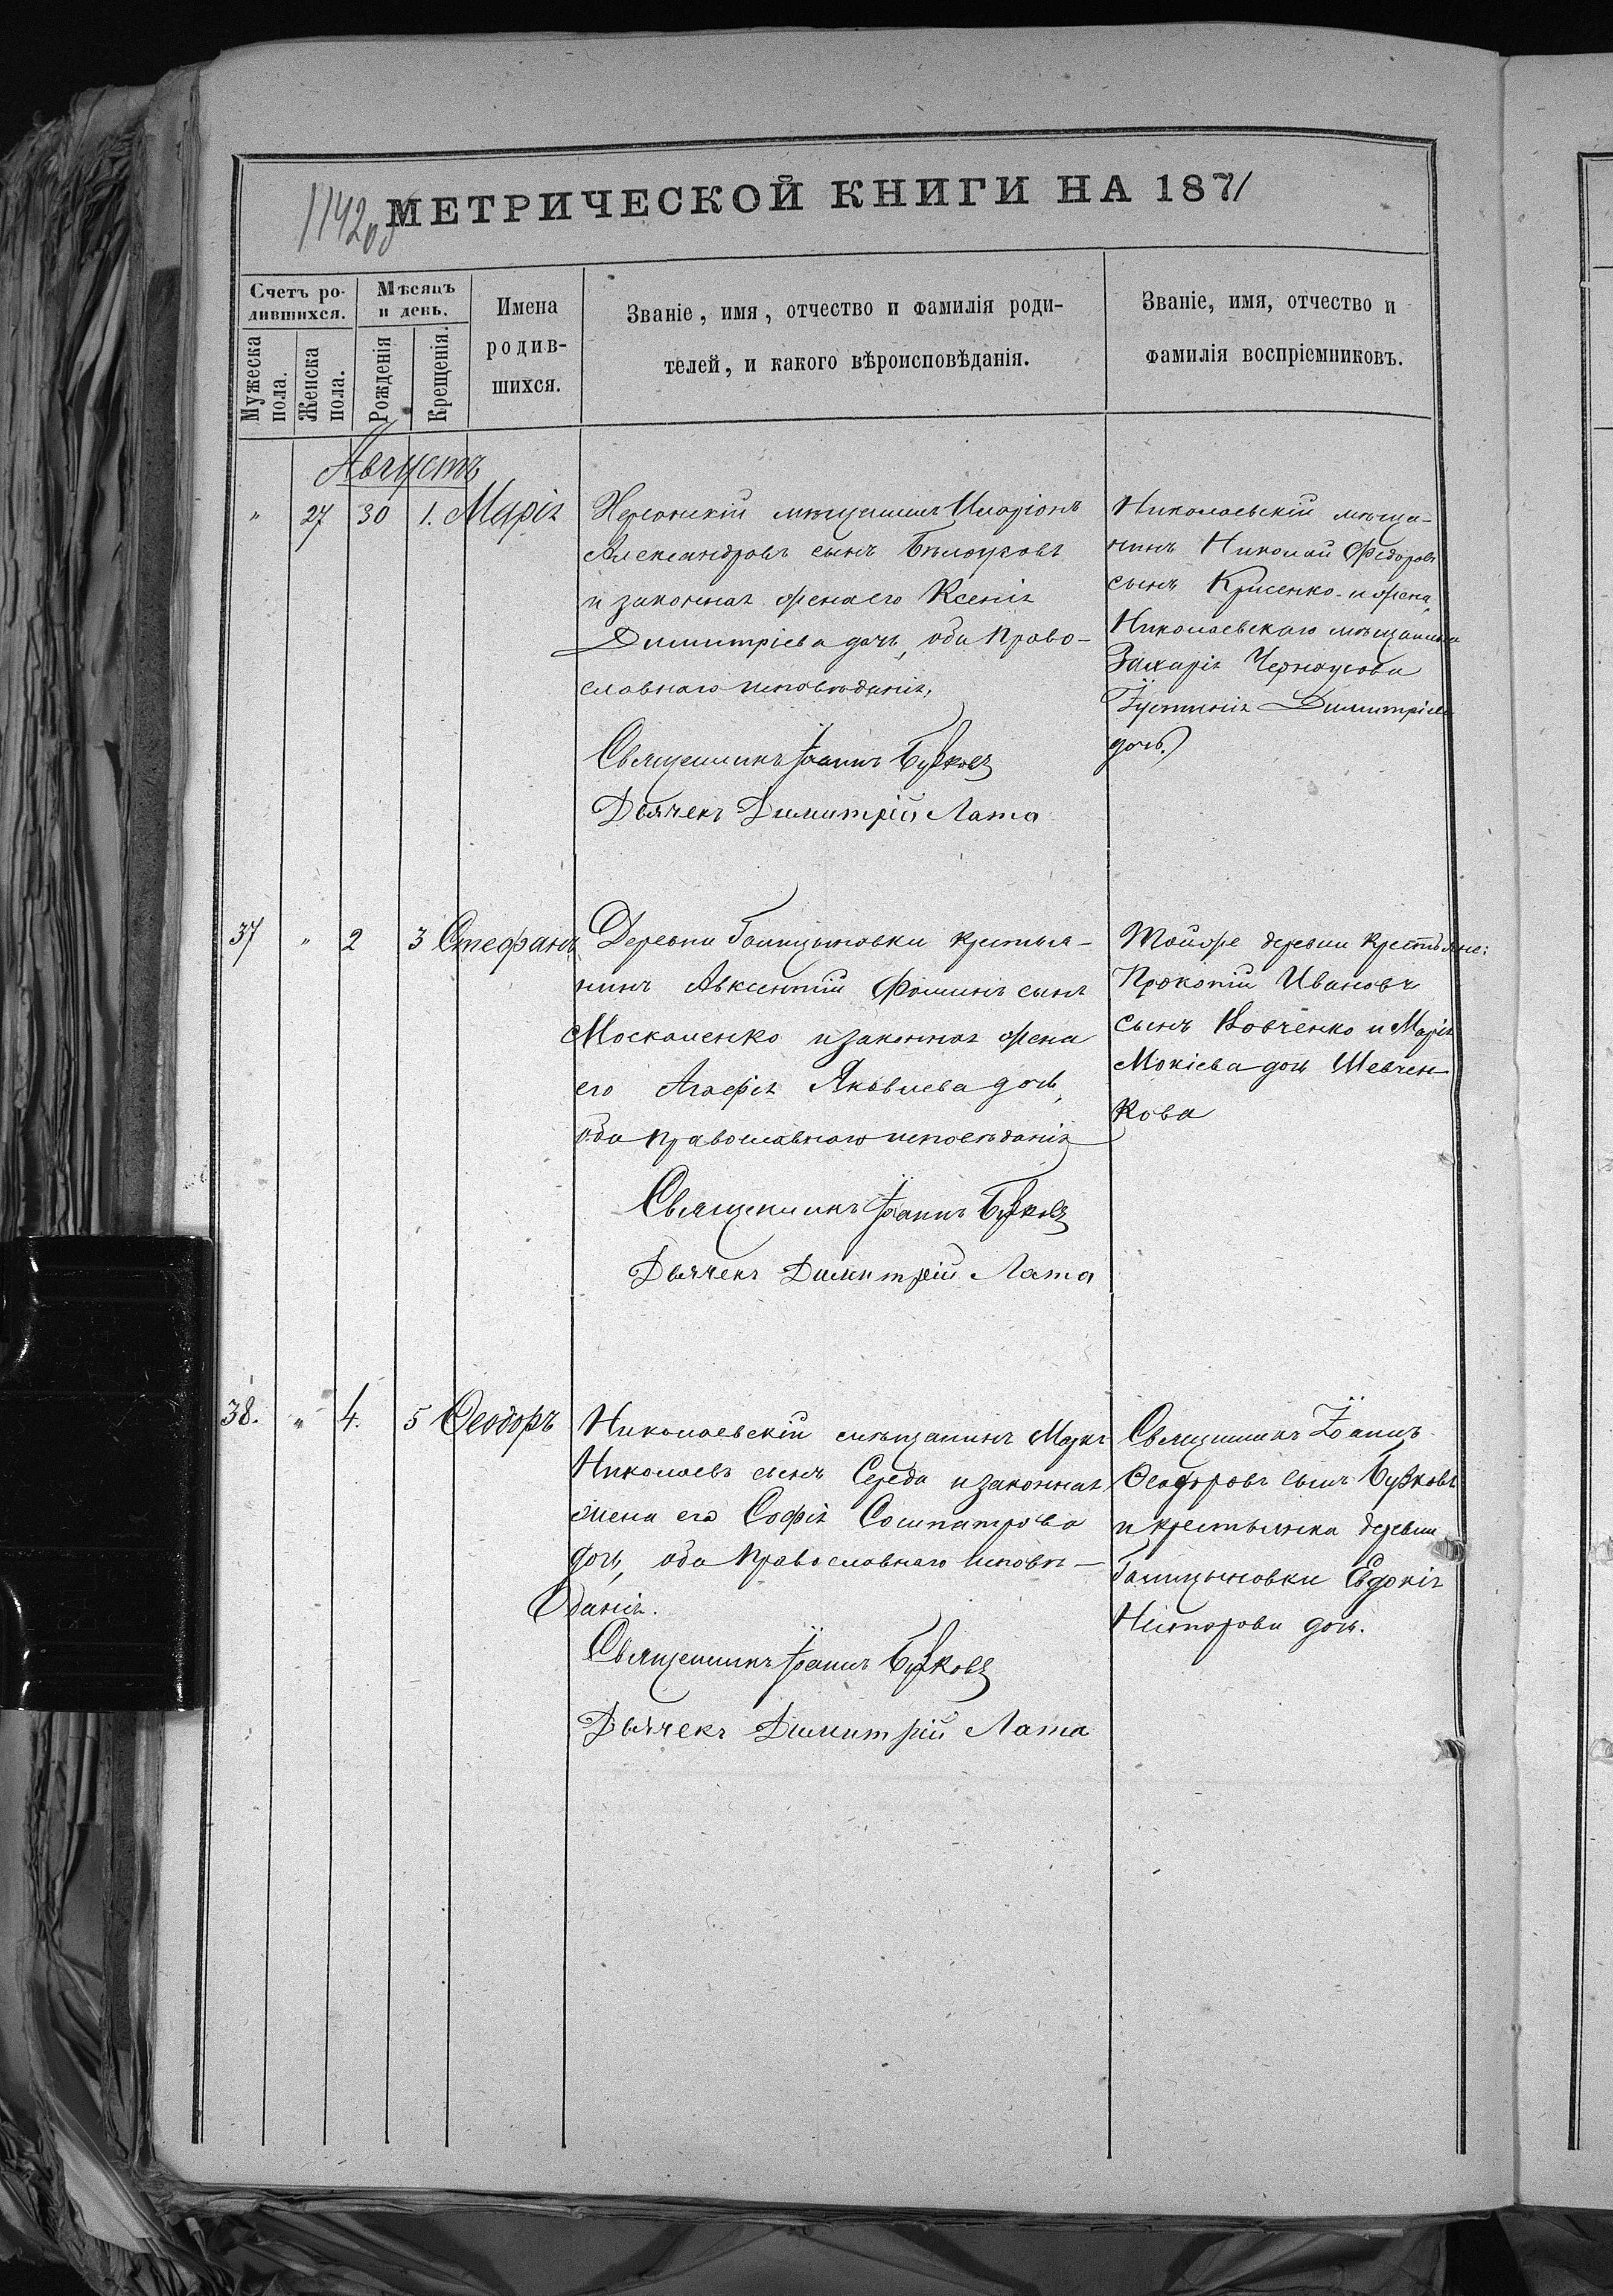 1142 об
МЕТРИЧЕСКОЙ КНИГИ НА 1871
Счетъ ро-
дившихся.
Мужеска
пола.
Женска
пола.
Мѣсяцъ
и день.
Рожденія
Крещенія.
Имена
родив-
шихся.
Званіе, имя, отчество и фамилія роди-
телей, и какого вѣроисповѣданія.
Званіе, имя, отчество и
фамилія воспріемниковъ.
Августъ
" 27 30 1. Марія
Херсонскій мѣщанинъ Иларіонъ
Александровъ сынъ Бѣлоусовъ
и законная жена его Ксенія
Димитріева дочь, оба право-
славнаго исповѣданія.
Священникъ Іоаннъ Бужковъ
Дьячекъ Димитрій Лата
Николаевскій мѣща-
нинъ Николай Федоровъ
сынъ Крисенко и жена
Николаевскаго мѣщанина
Захарія Черноусова
Іустинія Димитріева
дочь.
37 " 2 3 Стефанъ
Деревни Голицыновки крестья-
нинъ Авксентій Фоминъ сынъ
Москаленко и законная жена
его Агафія Яковлева дочь,
оба православнаго исповѣданія
Священникъ Іоаннъ Бужковъ
Дьячекъ Димитрій Лата
Тойже деревни крестьяне:
Прокопій Ивановъ
сынъ Вовченко и Марія
Мокіева дочь Шевчен-
кова
38. " 4. 5 Ѳеодоръ
Николаевскій мѣщанинъ Маркъ
Николаевъ сынъ Середа и законная
жена его Софія Сосипатрова
дочь, оба православнаго исповѣ-
данія.
Священникъ Іоаннъ Бужковъ
Дьячекъ Димитрій Лата
Священникъ Іоаннъ
Ѳеодоровъ сынъ Бужковъ
и крестьянка деревни
Голицыновки Евдокія
Несторова дочь.